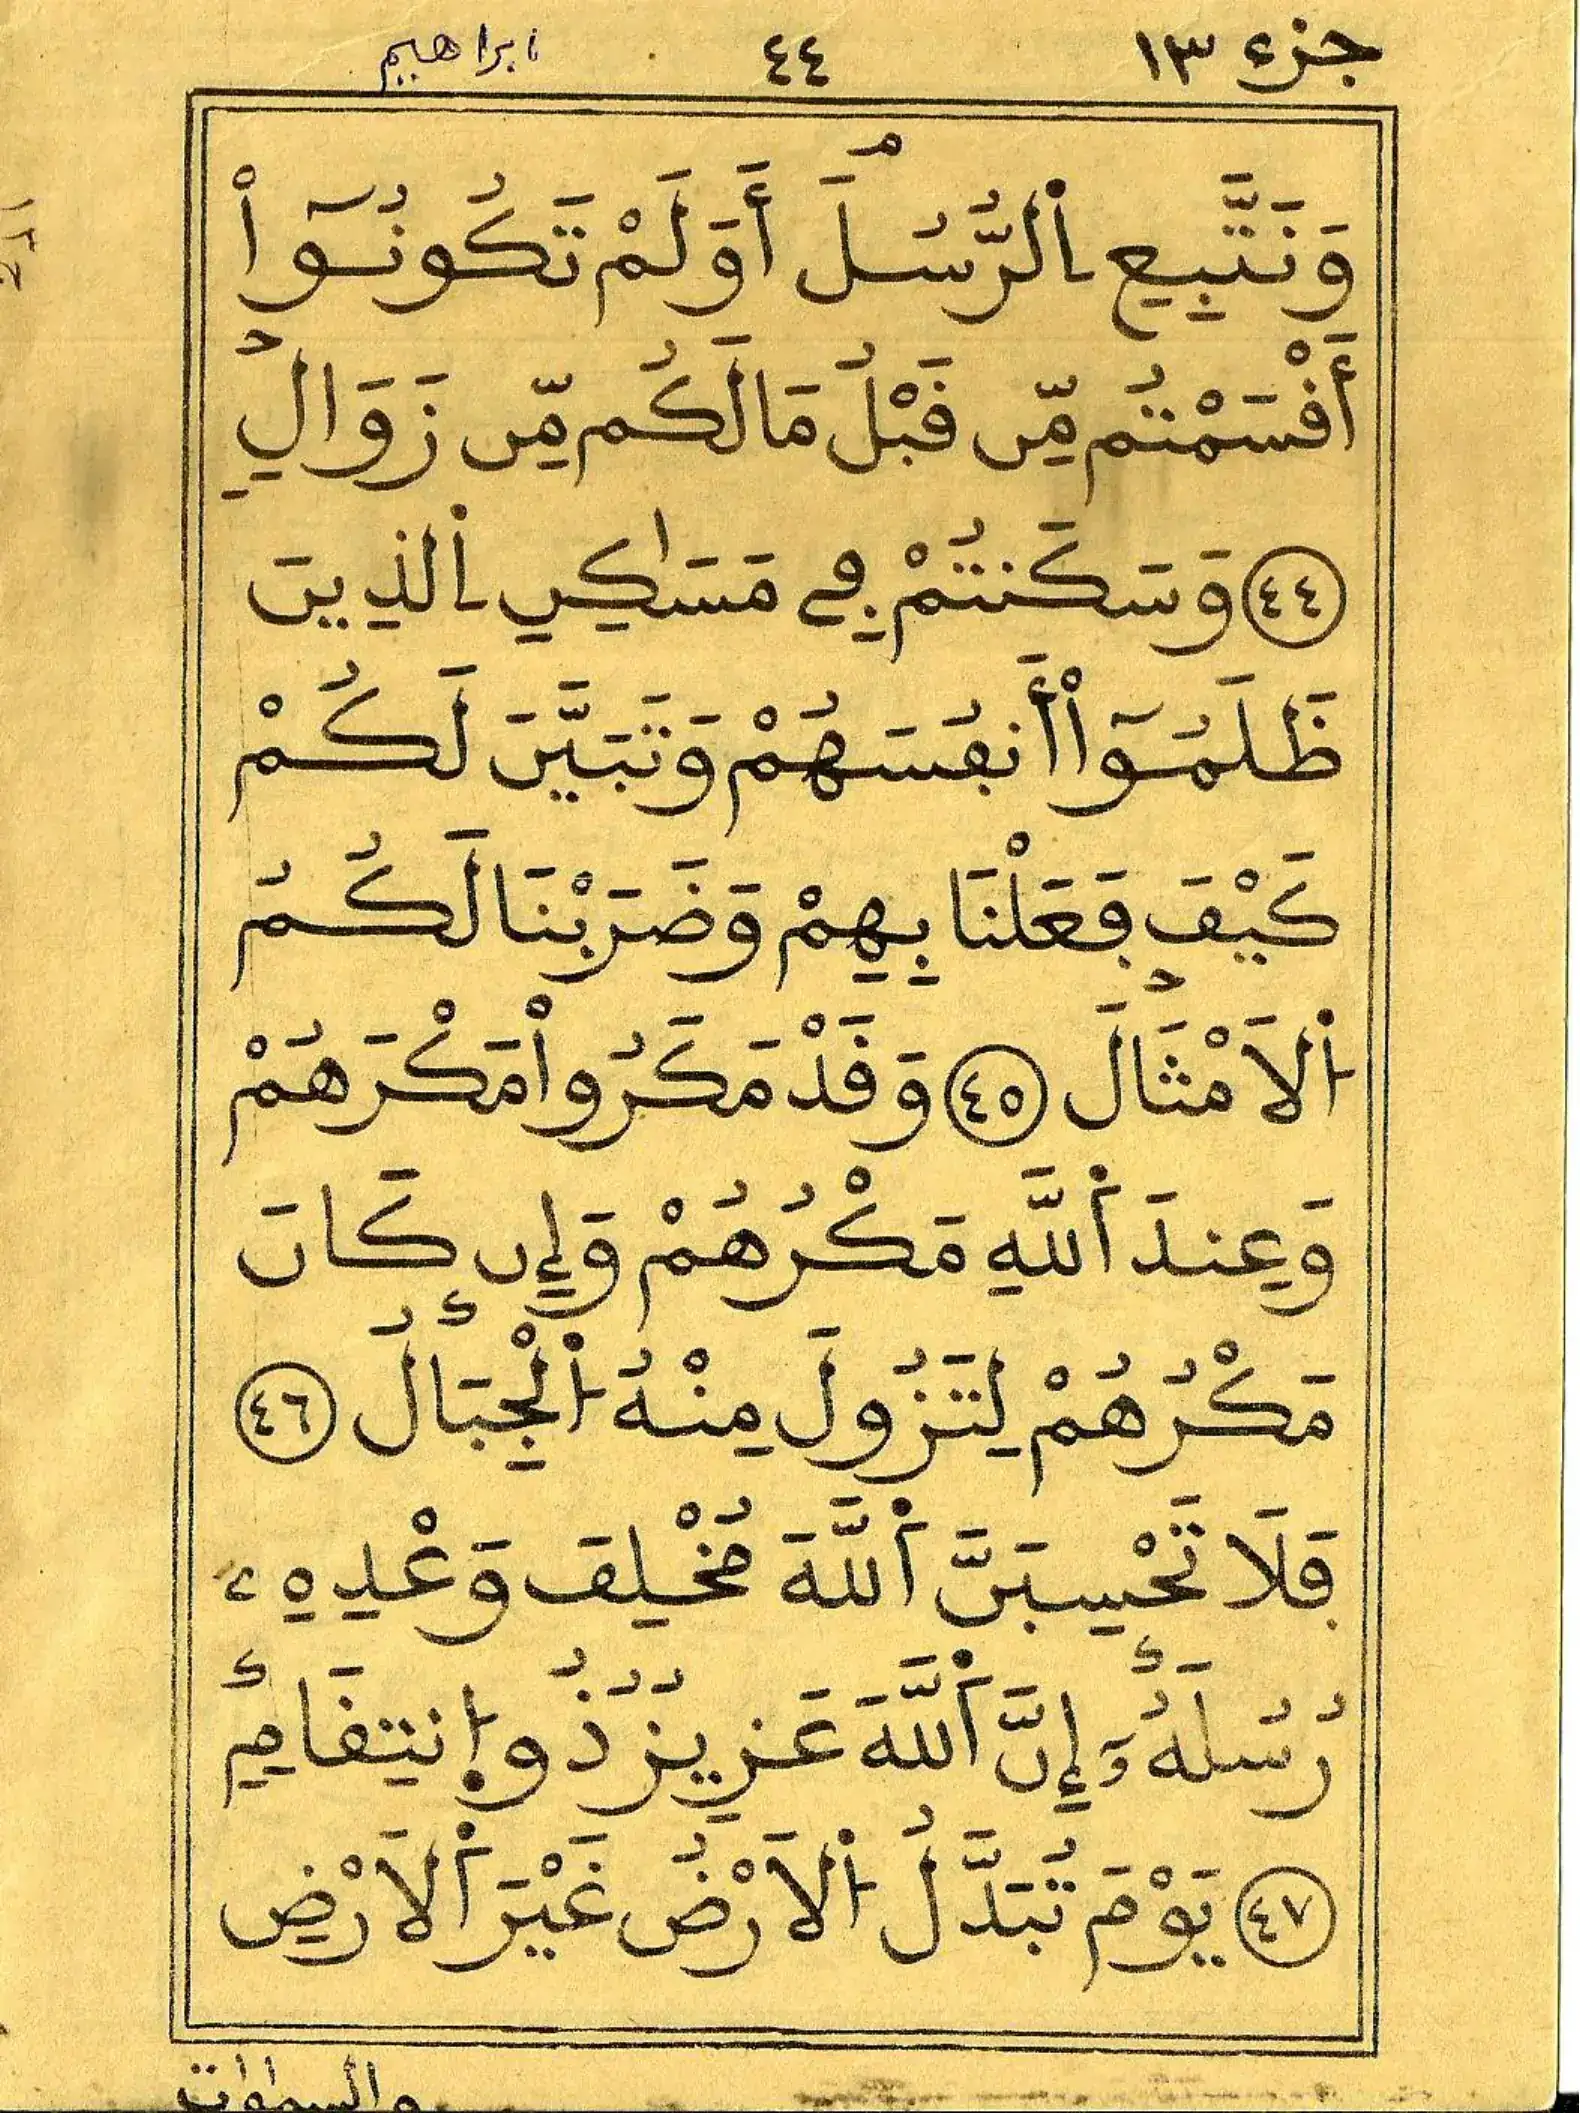 جزء ١٣ ٤٤ ابراهيم
وَنَتَّبِعِ اِ۬لرُّسُلَۖ أَوَلَمْ تَكُونُوٓاْ
أَقْسَمْتُم مِّن قَبْلُ مَا لَكُم مِّن زَوَالٖ
٤٤ وَسَكَنتُمْ فِے مَسَٰكِنِ اِ۬لذِينَ
ظَلَمُوٓاْ أَنفُسَهُمْ وَتَبَيَّنَ لَكُمْ
كَيْفَ فَعَلْنَا بِهِمْ وَضَرَبْنَا لَكُمُ
اُ۬لَامْثَالَ ٤٥ وَقَدْ مَكَرُواْ مَكْرَهُمْ
وَعِندَ اَ۬للَّهِ مَكْرُهُمْ وَإِن كَانَ
مَكْرُهُمْ لِتَزُولَ مِنْهُ اُ۬لْجِبَالُ ٤٦
فَلَا تَحْسِبَنَّ اَ۬للَّهَ مُخْلِفَ وَعْدِهِۦ
رُسُلَهُۥٓ إِنَّ اَ۬للَّهَ عَزِيزٞ ذُو اُ۪نتِقَامٖ
٤٧ يَوْمَ تُبَدَّلُ اُ۬لَارْضُ غَيْرَ اَ۬لَارْضِ
والسمٰوٰت